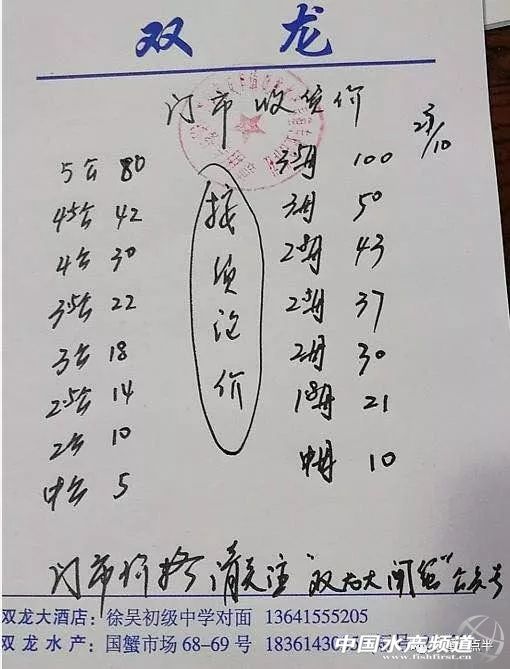 双 龙
门市收货价
23/10
5公 80
3.5母 100
4.5公 42
3母 50
4公 30
2.8母 43
3.5公 22
2.5母 37
3公 18
2母 30
2.5公 14
1.8母 21
2公 10
中母 10
中公 5
按质论价
门市价格请关注"双龙大闸蟹"公众号
双龙大酒店：徐吴初级中学对面 13641555205
双龙水产：国蟹市场68-69号 183614300
中国水产频道
www.fishfirst.cn
点半